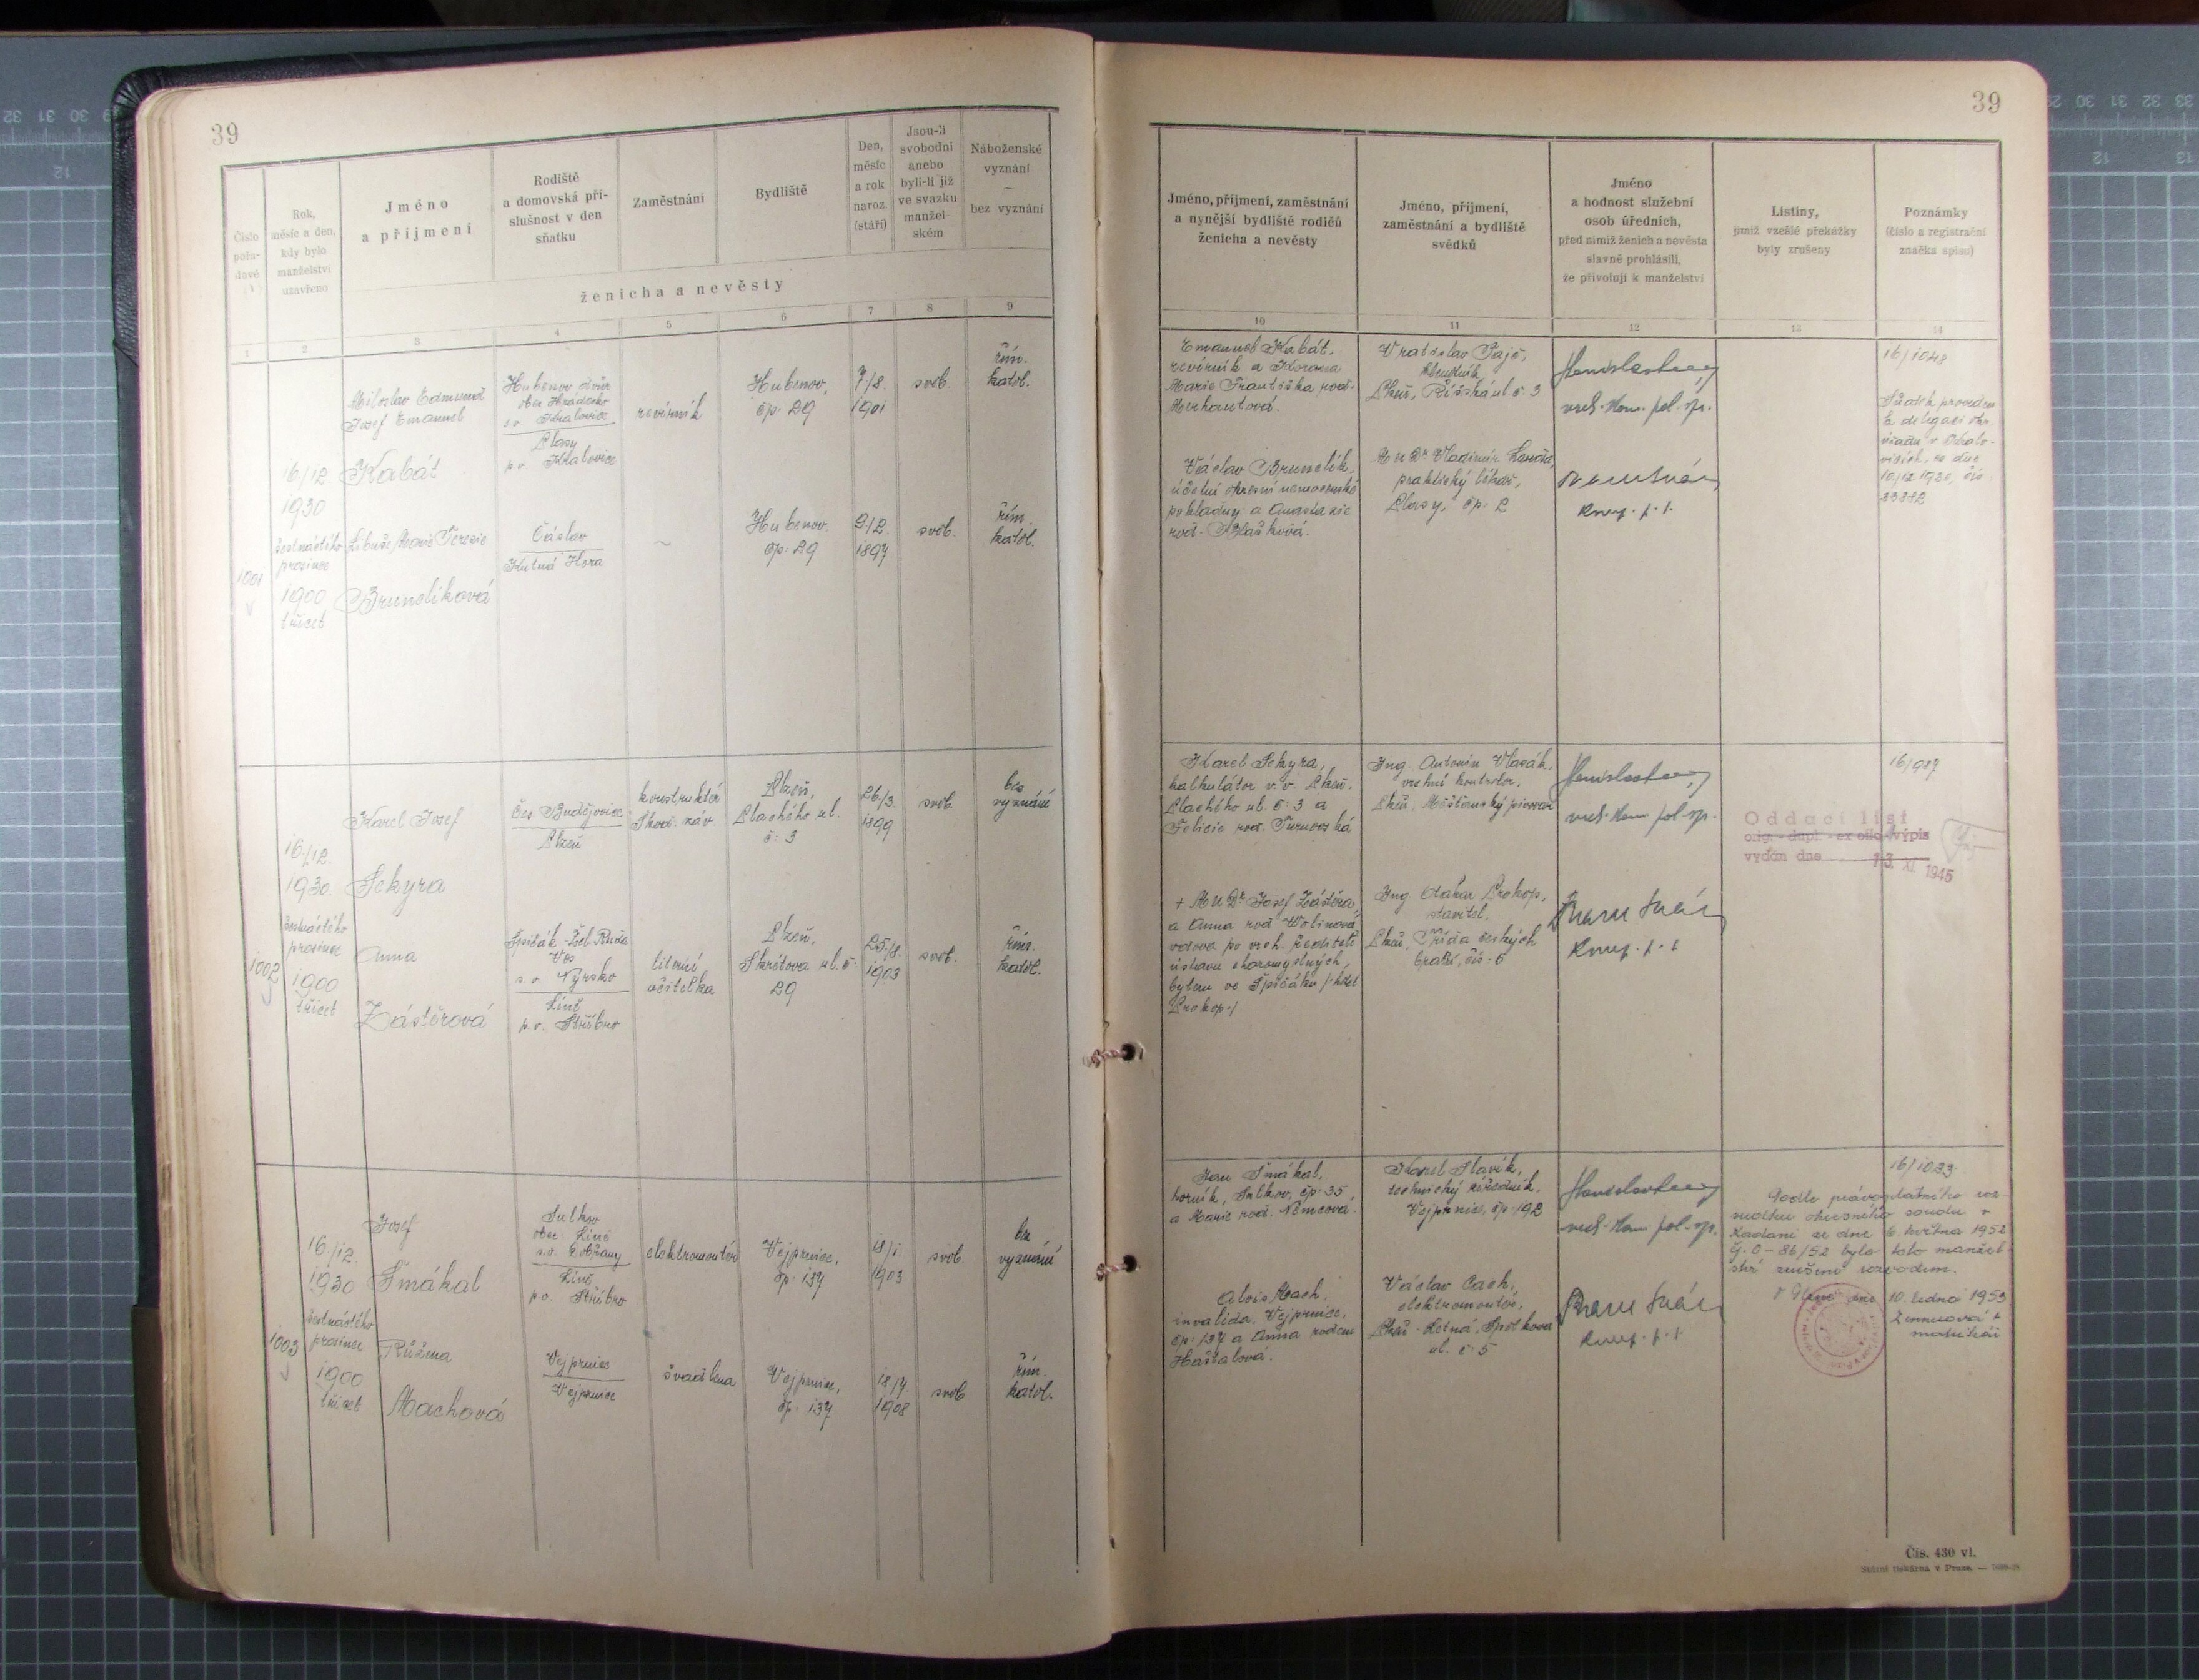 39
Číslo
pořa-
dové
Rok,
měsíc a den,
kdy bylo
manželství
uzavřeno
Jméno
a příjmení
Rodiště
a domovská pří-
slušnost v den
sňatku
Zaměstnání
Bydliště
Den,
měsíc
a rok
naroz.
(stáří)
Jsou-li
svobodni
anebo
byli-li již
ve svazku
manžel-
ském
Náboženské
vyznání
—
bez vyznání
ženicha a nevěsty
1 2 3 4 5 6 7 8 9
1001
16/12
1930
šestnáctého
prosince
1900
třicet
Miloslav Edmund
Josef Emanuel
Kabát
Hubenov dvůr
obec Hradecko
s.o. Kralovice
Plasy
p.o. Kralovice
revírník
Hubenov,
čp: 29
7/8.
1901
svob.
řím.
katol.
Libuše Marie Terezie
Brunclíková
Čáslav
Kutná Hora
~
Hubenov,
čp: 29
9/2.
1897
svob.
řím.
katol.
1002
16/12.
1930
šestnáctého
prosince
1900
třicet
Karel Josef
Sekyra
Čes. Budějovice
Plzeň
konstruktér
Škod. záv.
Plzeň,
Plachého ul.
č: 3
26/3.
1899
svob.
bez
vyznání
Anna
Zástěrová
Špičák-Žel. Ruda
Ves
s.o. Nýrsko
Líně
p.o. Stříbro
literní
učitelka
Plzeň,
Skrétova ul. č:
29
25/8.
1903
svob.
řím.
katol.
1003
16/12.
1930
šestnáctého
prosince
1900
třicet
Josef
Šmákal
Sulkov
obec Líně
s.o. Dobřany
Líně
p.o. Stříbro
elektromontér
Vejprnice,
čp: 137
18/1.
1903
svob.
bez
vyznání
Růžena
Machová
Vejprnice
Vejprnice
švadlena
Vejprnice,
čp: 137
18/7.
1908
svob
řím.
katol.
39
Jméno, příjmení, zaměstnání
a nynější bydliště rodičů
ženicha a nevěsty
Jméno, příjmení,
zaměstnání a bydliště
svědků
Jméno
a hodnost služební
osob úředních,
před nimiž ženich a nevěsta
slavně prohlásili,
že přivolují k manželství
Listiny,
jimiž vzešlé překážky
byly zrušeny
Poznámky
(číslo a registrační
značka spisu)
10 11 12 13 14
Emanuel Kabát,
revírník a
Marie Františka rod.
Merhautová.
Václav Brunclík,
účetní okresní nemocenské
pokladny a Anastazie
rod. Blažková.
Vratislav
Plzeň, Říšská ul. č: 3
MuDr Vladimír
praktický lékař,
Plasy, čp: 2
16/1048
Sňatek proveden
z delegace okr.
úřadu v Kralo-
vicích, ze dne
10/12 1930, čís
Karel Sekyra,
kalkulátor v.v. Plzeň.
Plachého ul. č: 3 a
Felicie rod. Turnovská
+ MuDr Josef Zástěra,
a Anna rod. Wolinová
vdova po vrch. řediteli
ústavu choromyslných,
bytem ve Špičáku /:hotel
Prokop:/
Ing. Antonín Vlasák,
vrchní kontrolor,
Plzeň, Měšťanský pivovar
Ing. Otakar Prokop,
stavitel.
Plzeň, Třída českých
bratří, čís: 6
Oddací list
orig. - dupl. - ex offo - výpis
vydán dne 13 XI 1945
16/987
Jan Šmákal,
horník, Sulkov, čp: 35,
a Marie rod. Němcová.
Alois Mach,
invalida, Vejprnice,
čp: 137 a Anna rodem
Haštalová.
Karel Slavík,
technický úředník,
Vejprnice, čp: 192
Václav Cach,
elektromontér,
Plzeň - Letná, Spolková
ul. č: 5
16/1033
Podle právoplatného roz-
sudku okresního soudu v
Kadani ze dne 6. května 1952
č.j. 0-86/52 bylo toto manžel-
ství zrušeno rozvodem.
V Plzni dne 10. ledna 1953
matrikář
Čís. 430 vl.
Státní tiskárna v Praze.